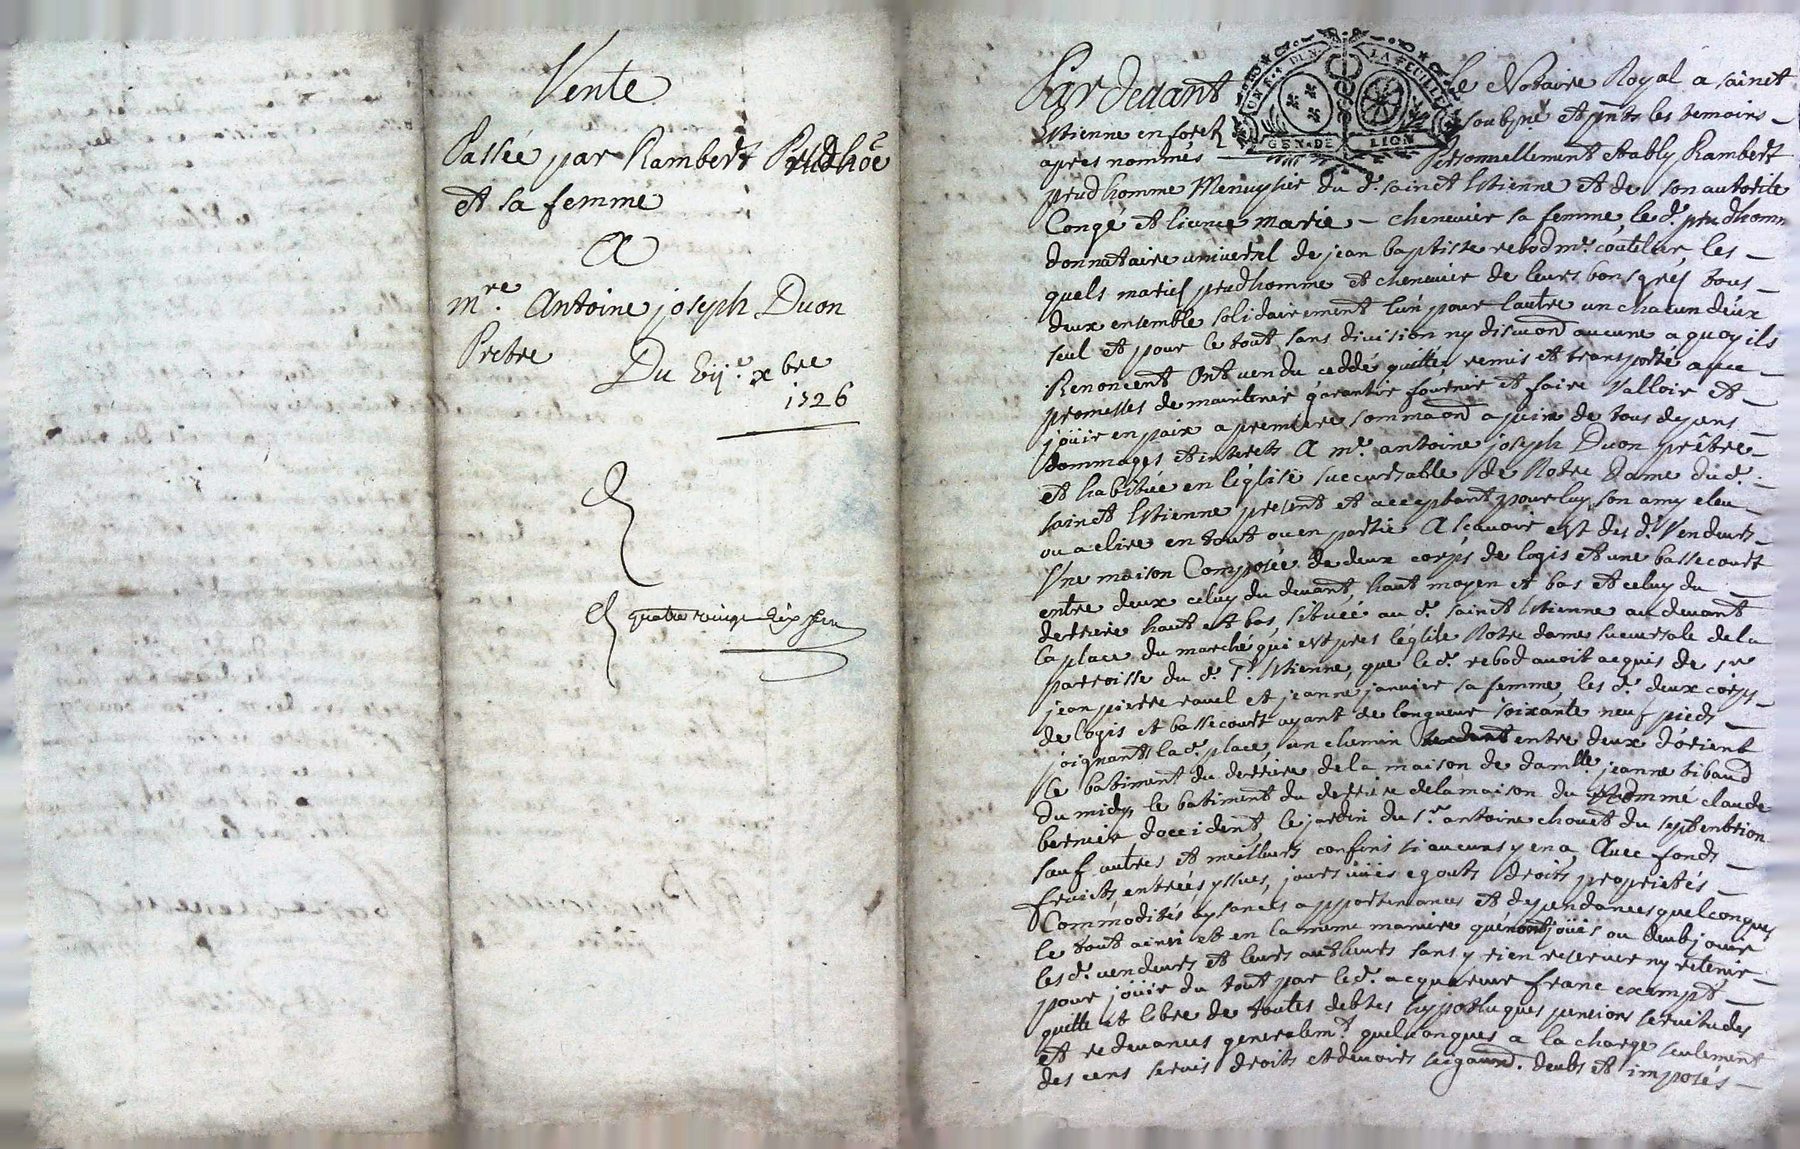 Vente
Passée par Rambert Prudhoe
et sa femme
A
mre. Antoine joseph Duon
Pretre
Du bije. xbre
1726
quatre vingt dix sept
UN F. 4 DEN. LA FEUILLE
GEN. DE LION
Par devant le Notaire Royal a sainct
Estienne en forez soubné et pnts les temoins
apres nommés Personnellement estably Rambert
prudhomme Menuysier du d. sainct Estienne et de son autorite
Congé et licence marie chenevier sa femme, le d. prudhomm
donnataire universel de jean baptiste rebod me. coutelier, les
quels mariés prudhomme et chenevier de leurs bons grés tous
deux ensemble solidairement l'un pour l'autre un chacun d'eux
seul et pour le tout sans division ny discuon aucune a quoy ils
Renoncent Ont vendu ceddé quitté remis et transporté avec
promesses de maintenir garantir fournir et faire valloir et
joüir en paix a premiere sommaon a peine de tous depens
dommages et interets A me. antoine joseph Duon prêtre
et habitué en l'église succursable de Notre Dame du d.
sainct Estienne present et acceptant pour luy son amy eleu
ou a elire en tout ou en partie A scavoir est des d. Vendeurs
Une maison Composée de deux corps de logis et une bassecourt
entre deux celuy du devant, haut moyen et bas et celuy du
derriere haut et bas, scituée au d. sainct Estienne au devant
la place du marché qui est pres l'église Notre dame sucursale de la
parroisse du d. St. Estienne, que le d. rebod avoit acquis de sr
jean pierre ravel et jeanne janvier sa femme, les d. deux corps
de logis et bassecourt ayant de longueur soixante neuf pieds
joignants la d. place, un chemin entre deux d'orient
le batiment du derriere de la maison de damlle. jeanne bibaud
du midy, le batiment du derriere de la maison du nommé claude
bernier d'occident, le jardin du sr. antoine chouet du septentrion
sauf autres et meilleurs confins si aucuns y en a, Avec fonds
fruits, entrées yssues, jours vües egouts droits proprietés
Commodités aysances appartenances et dependances quelconques
le tout ainsi et en la meme maniere qu'en ont joüis ou deub joüir
les d. vendeurs et leurs autheurs sans y rien reserver ny retenir
pour joüir du tout par le d. acquereur franc exempt
quitte et libre de toutes debtes hypotheques pensions servitudes
et redevances generalemt. quelconques a la charge seulement
des cens servis droits et devoirs seigaux. deubs et imposés